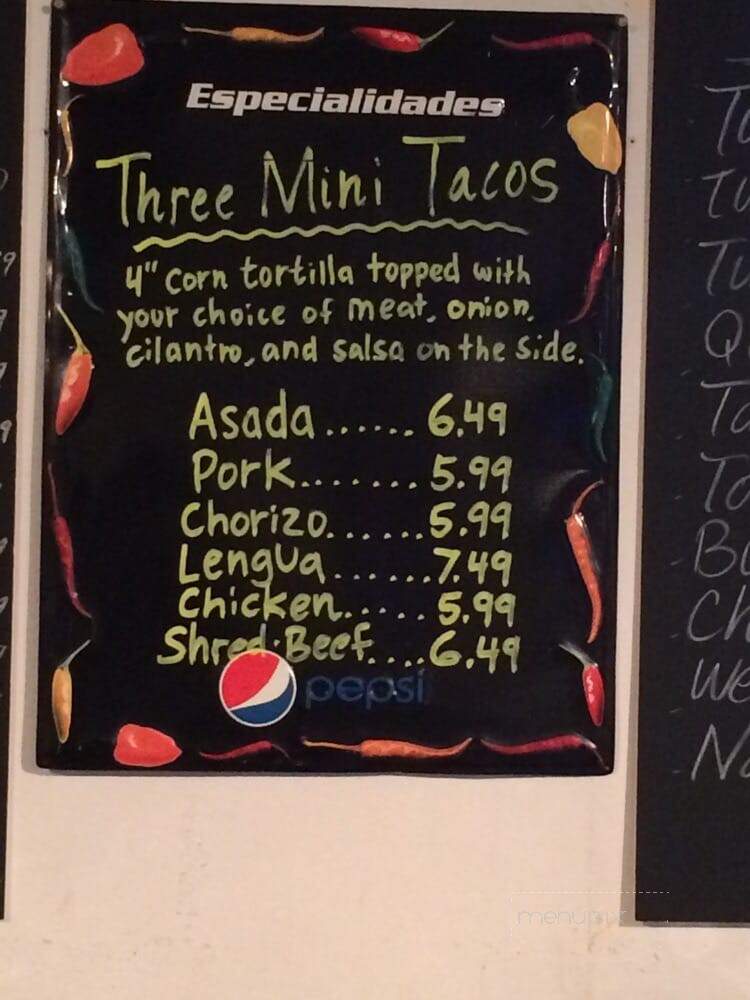 Especialidades
Three Mini Tacos
4" corn tortilla topped with
your choice of meat, onion,
cilantro, and salsa on the side.
Asada...... 6.49
Pork....... 5.99
Chorizo......5.99
Lengua......7.49
Chicken..... 5.99
Shred. Beef....6.49
pepsi